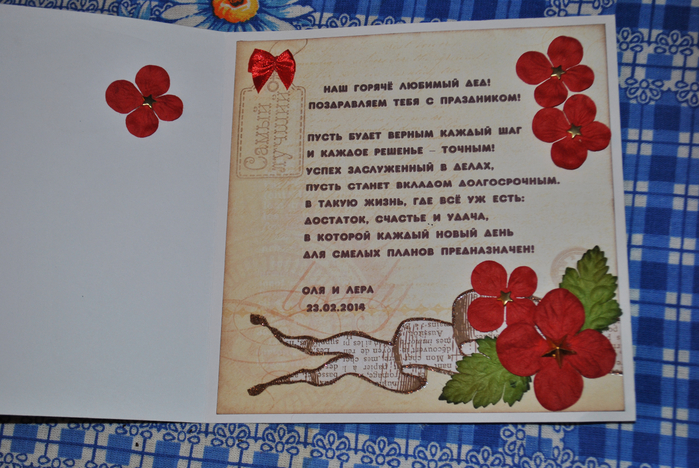 Самый
лучший
НАШ ГОРЯЧЁ ЛЮБИМЫЙ ДЕД!
ПОЗДРАВЛЯЕМ ТЕБЯ С ПРАЗДНИКОМ!
ПУСТЬ БУДЕТ ВЕРНЫМ КАЖДЫЙ ШАГ
И КАЖДОЕ РЕШЕНЬЕ – ТОЧНЫМ!
УСПЕХ ЗАСЛУЖЕННЫЙ В ДЕЛАХ,
ПУСТЬ СТАНЕТ ВКЛАДОМ ДОЛГОСРОЧНЫМ.
В ТАКУЮ ЖИЗНЬ, ГДЕ ВСЁ УЖ ЕСТЬ:
ДОСТАТОК, СЧАСТЬЕ И УДАЧА,
В КОТОРОЙ КАЖДЫЙ НОВЫЙ ДЕНЬ
ДЛЯ СМЕЛЫХ ПЛАНОВ ПРЕДНАЗНАЧЕН!
ОЛЯ И ЛЕРА
23.02.2014